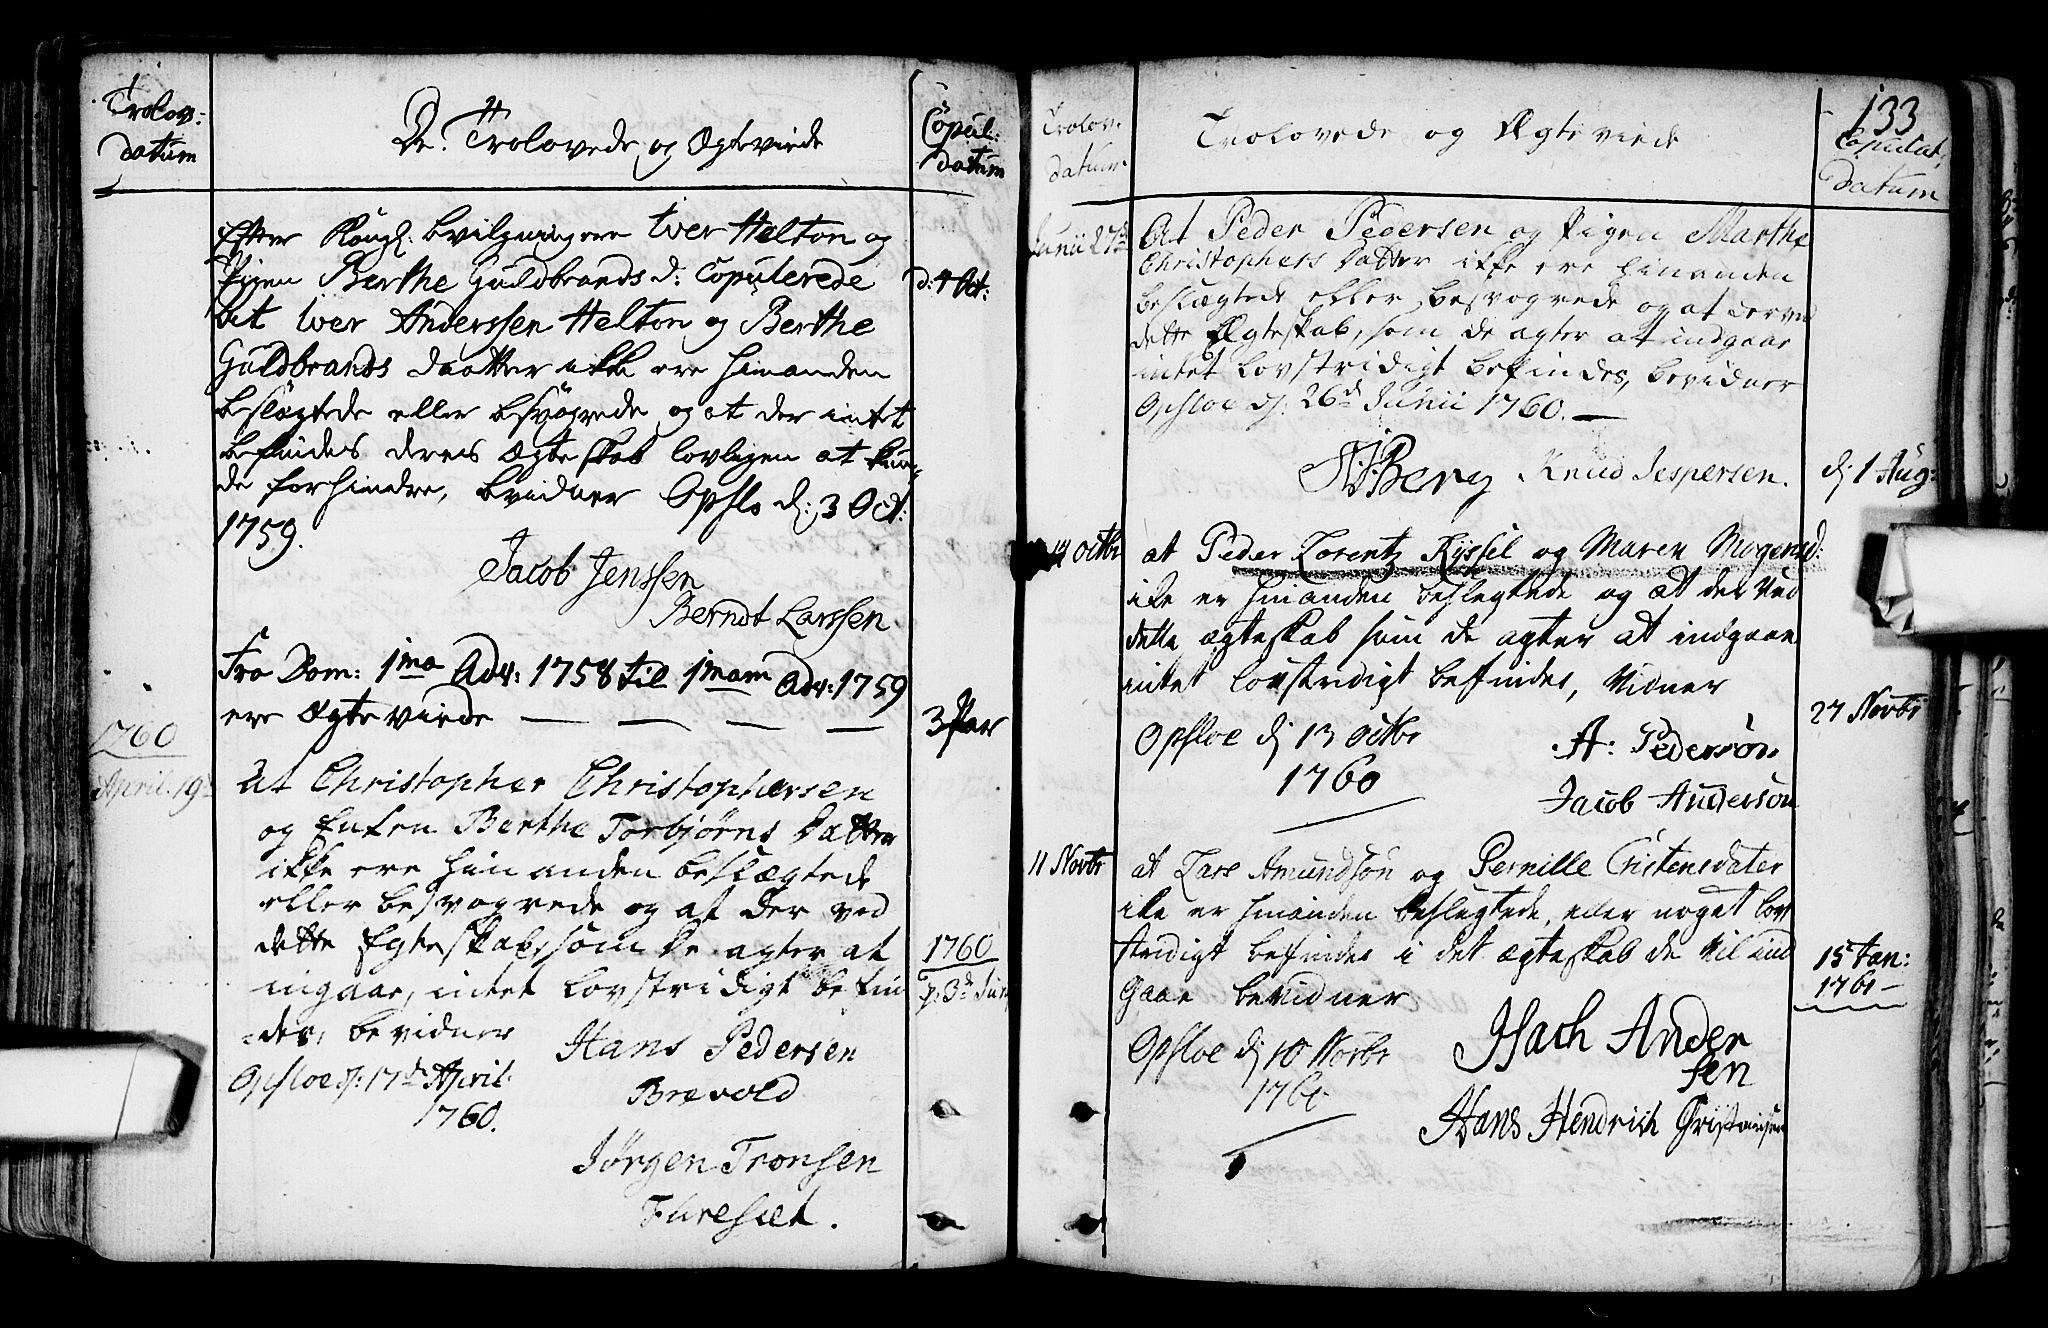 Trolov:
Datum
De Trolovede og Ægteviede
Copul:
Datum
Efter Kongl: bevilgning ere Iver Helton og
Pigen Berthe Guldbrands d: Copulerede
d: 4 Oct:
At Iver Anderssen Helton og Berthe
Guldbrands daatter ikke ere hinanden
beslægtede eller besvogrede og at der intet
befindes deres Ægteskab lovligen at kun-
de forhindre, bevidner Opslo d: 3 Oct:
1759.
Jacob Jenssen
Berndt Larssen
Fra Dom: 1ma Adv: 1758 til 1mam Adv: 1759
ere Ægteviede — — — —
3 Par
1760
April: 19d
At Christopher Christophersen
og Enken Berthe Torbjørns Datter
ikke ere hinanden beslægtede
eller besvogrede og at der ved
dette Egteskab, som de agter at
1760
ingaae, intet lovstridigt befin
d: 3d
-des, bevidner
Hans Pedersen
Opsloe d: 17d April:
Brevold
1760.
Jørgen Tronsen
Furesæt.
133
Trolov:
datum
Trolovede og Ægteviede
Copulat:
Datum
Junii 27d
At Peder Pedersen og Pigen Marthe
Christophers Datter ikke ere hinanden
beslægtede eller besvogrede og at der ved
dette Ægteskab, som de agter at indgaae
intet lovstridigt befindes, bevidner
Opsloe d: 26d Junii 1760. —
Berg Knud Jespersen.
d: 1 Aug:
14 Octbr
at Peder Lorentz Kyssel og Maren Mogensd:
ike er hinanden beslegtede og at der ved
dette ægteskab som de agter at indgaae
intet lovstridigt befindes, vidner
27 Novbr
Opsloe dj 13 Octbr
A: Pedersön
1760
Jacob Anderson
11 Novbr
at Lars Amundsön og Pernille Cristensdater
ike er hinanden beslegtede, eller noget lov
stridigt befindes i det ægteskab de vil ind
15 Jan:
gaae bevidner
1761 —
Opsloe dj 10 Novbr
Isach Ander
sen
1760
Hans Hendrich Cristensen